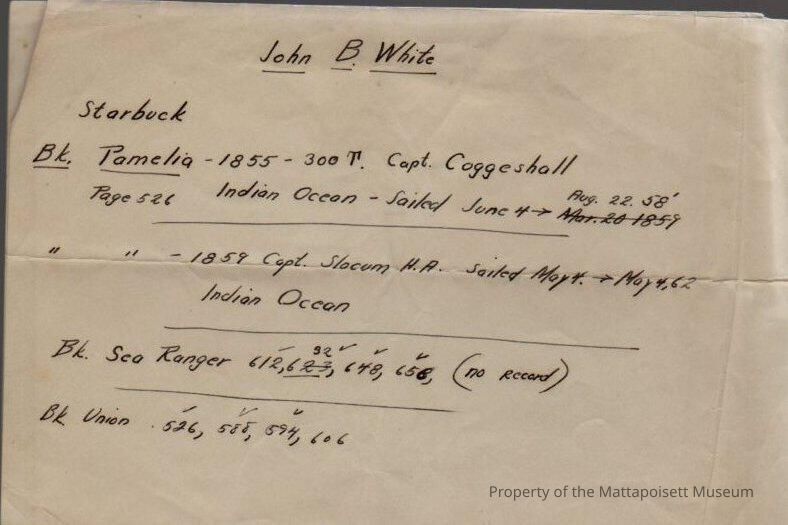 John B. White
Starbuck
Bk. Pamelia - 1855 - 300 T. Capt. Coggeshall
Aug. 22. 58'
Page 526 Indian Ocean - Sailed June 4 → Mar. 20 1859
" " - 1859 Capt. Slocum H.A. Sailed May 4. → May 4, 62
Indian Ocean
32
Bk. Sea Ranger 612, 623, 648, 658, (no record)
Bk Union 526, 588, 594, 606
Property of the Mattapoisett Museum